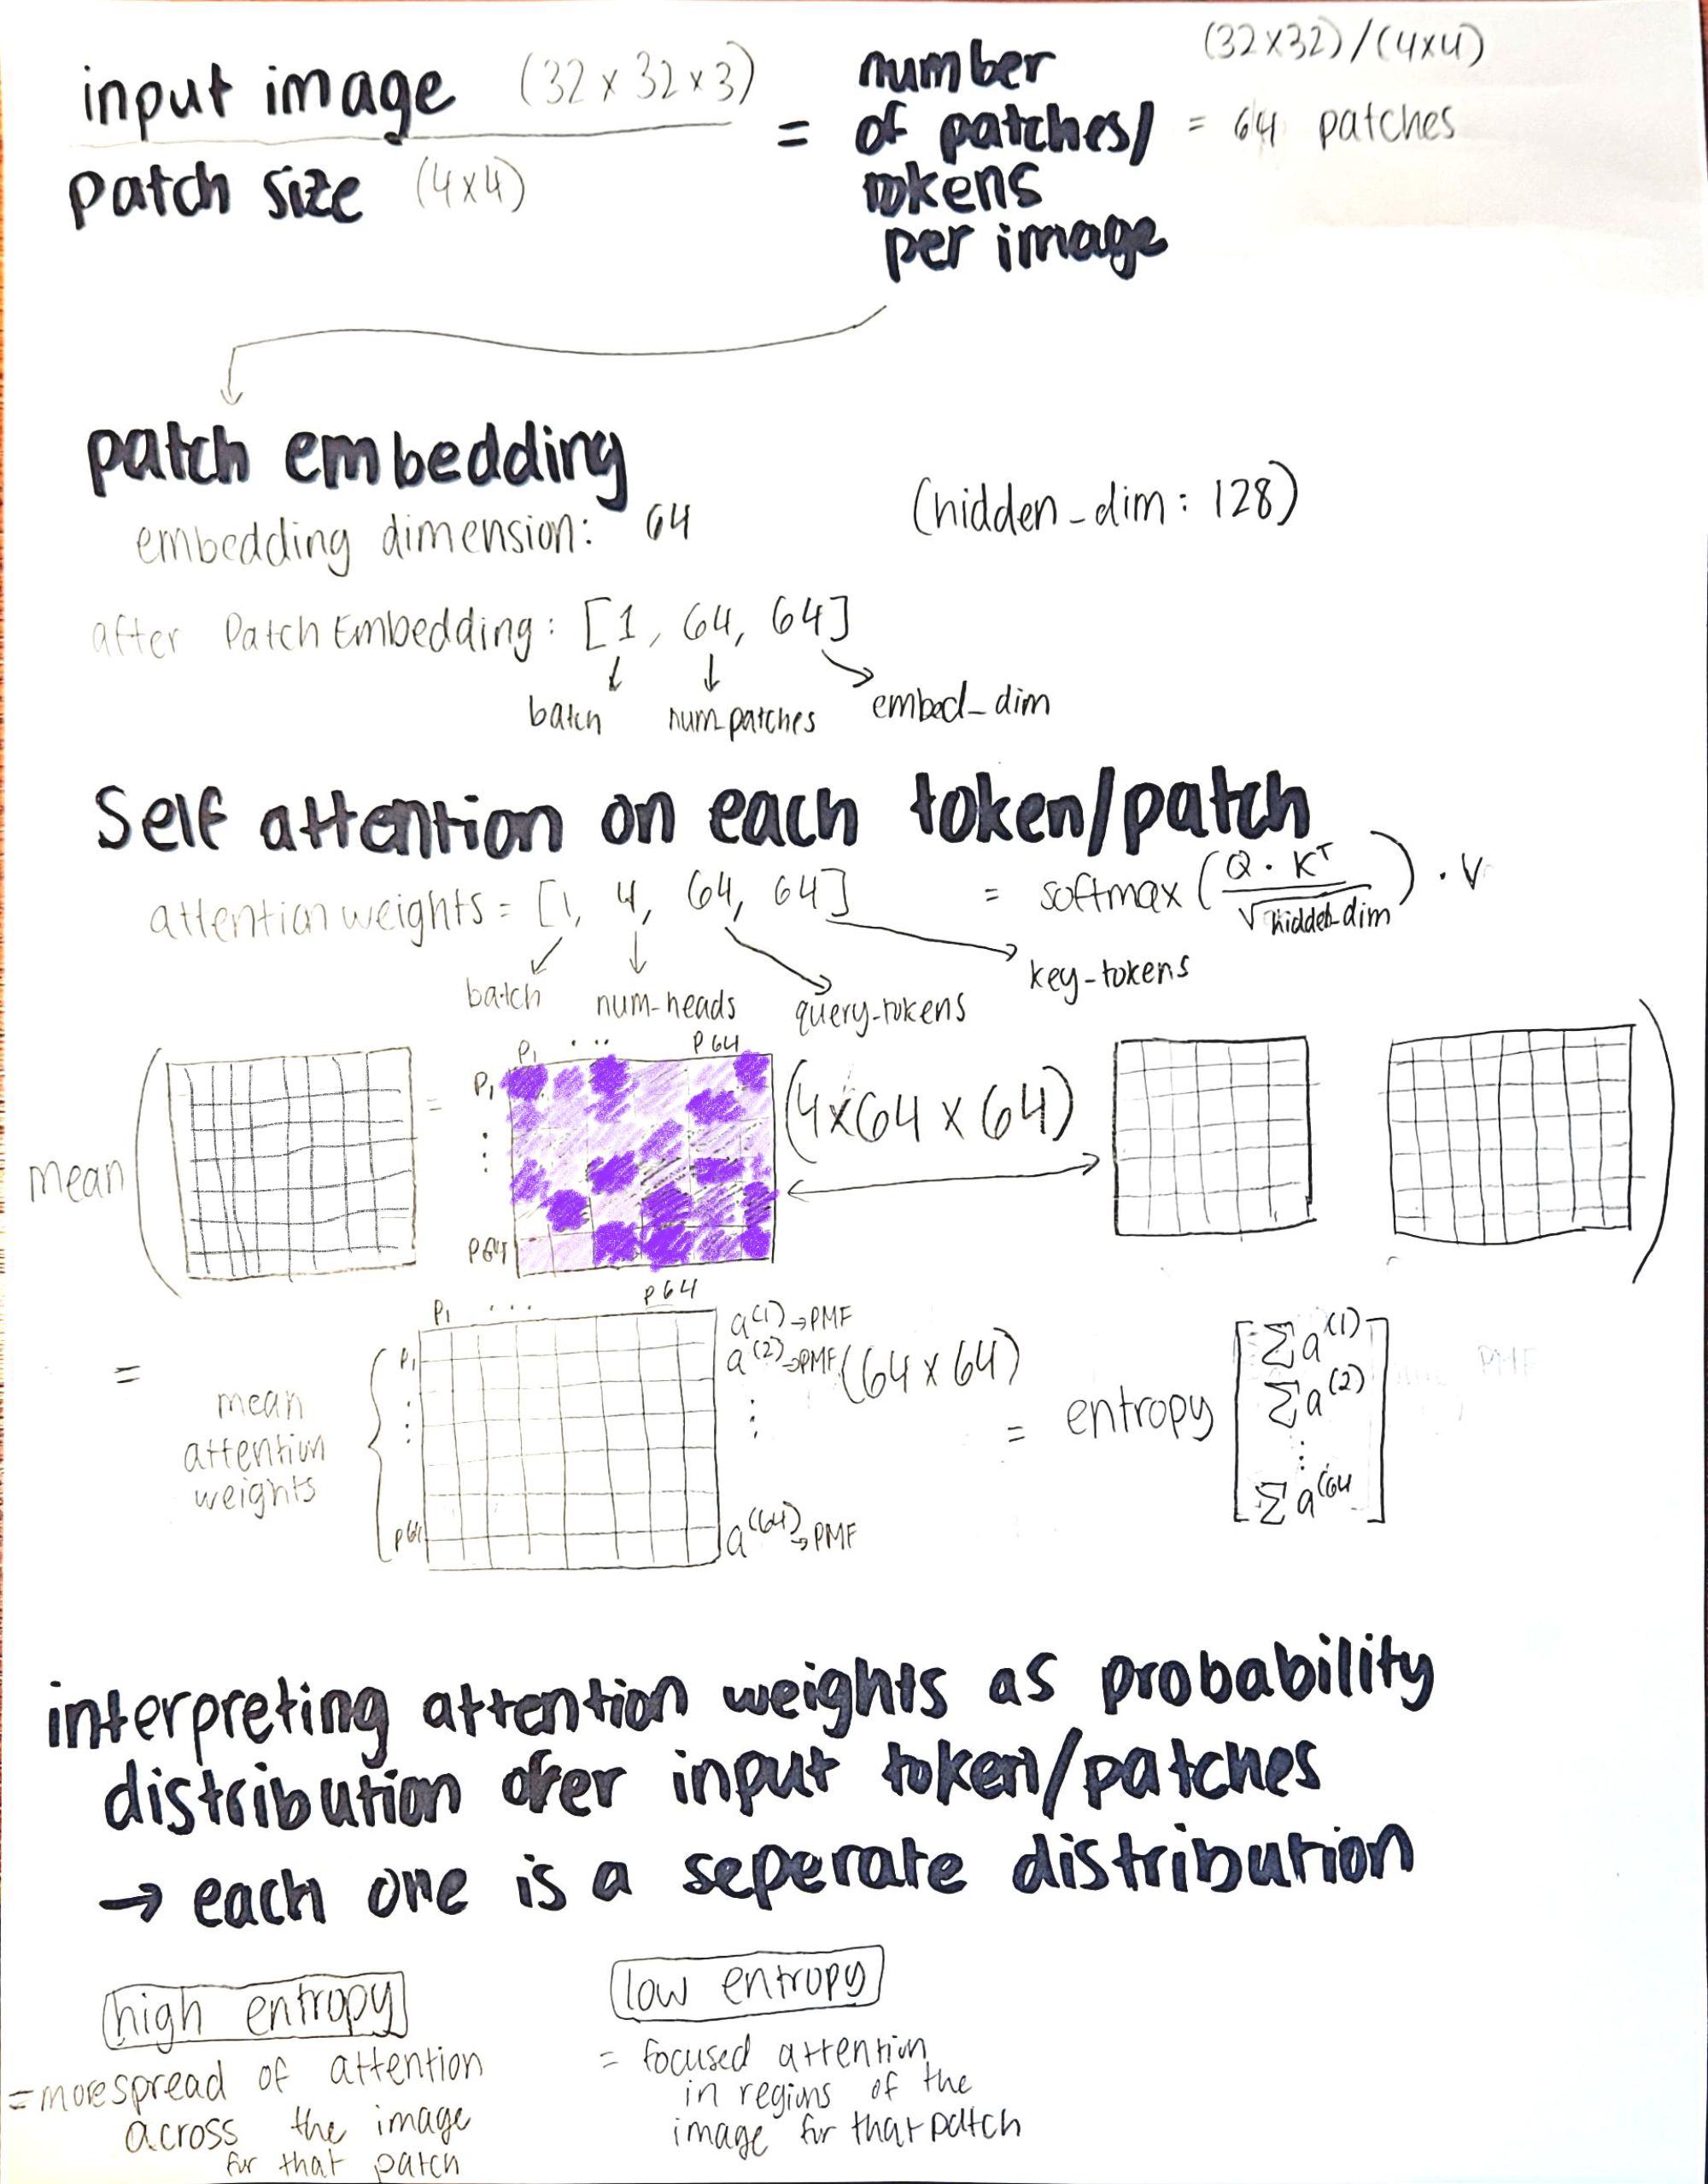 input image (32 x 32 x 3)
patch size (4x4)
=
number
of patches/
tokens
per image
(32x32)/(4x4)
= 64 patches
patch embedding
embedding dimension: 64
(hidden_dim: 128)
after Patch Embedding: [1, 64, 64]
batch num_patches embed_dim
Self attention on each token/patch
attention weights = [1, 4, 64, 64] = softmax (Q · K^T / √hidden_dim) · V
batch num-heads query-tokens key-tokens
P1 ... P64
P1
⋮
P64
mean ( = (4x64 x 64) )
P1 ... P64
= mean
attention
weights
P1
⋮
P64
a^(1) → PMF
a^(2) → PMF
⋮
a^(64) → PMF
(64 x 64)
= entropy [
Σa^(1)
Σa^(2)
⋮
Σa^(64
]
PMF
interpreting attention weights as probability
distribution over input token/patches
→ each one is a seperate distribution
high entropy
= more spread of attention
across the image
for that patch
low entropy
= focused attention
in regions of the
image for that patch